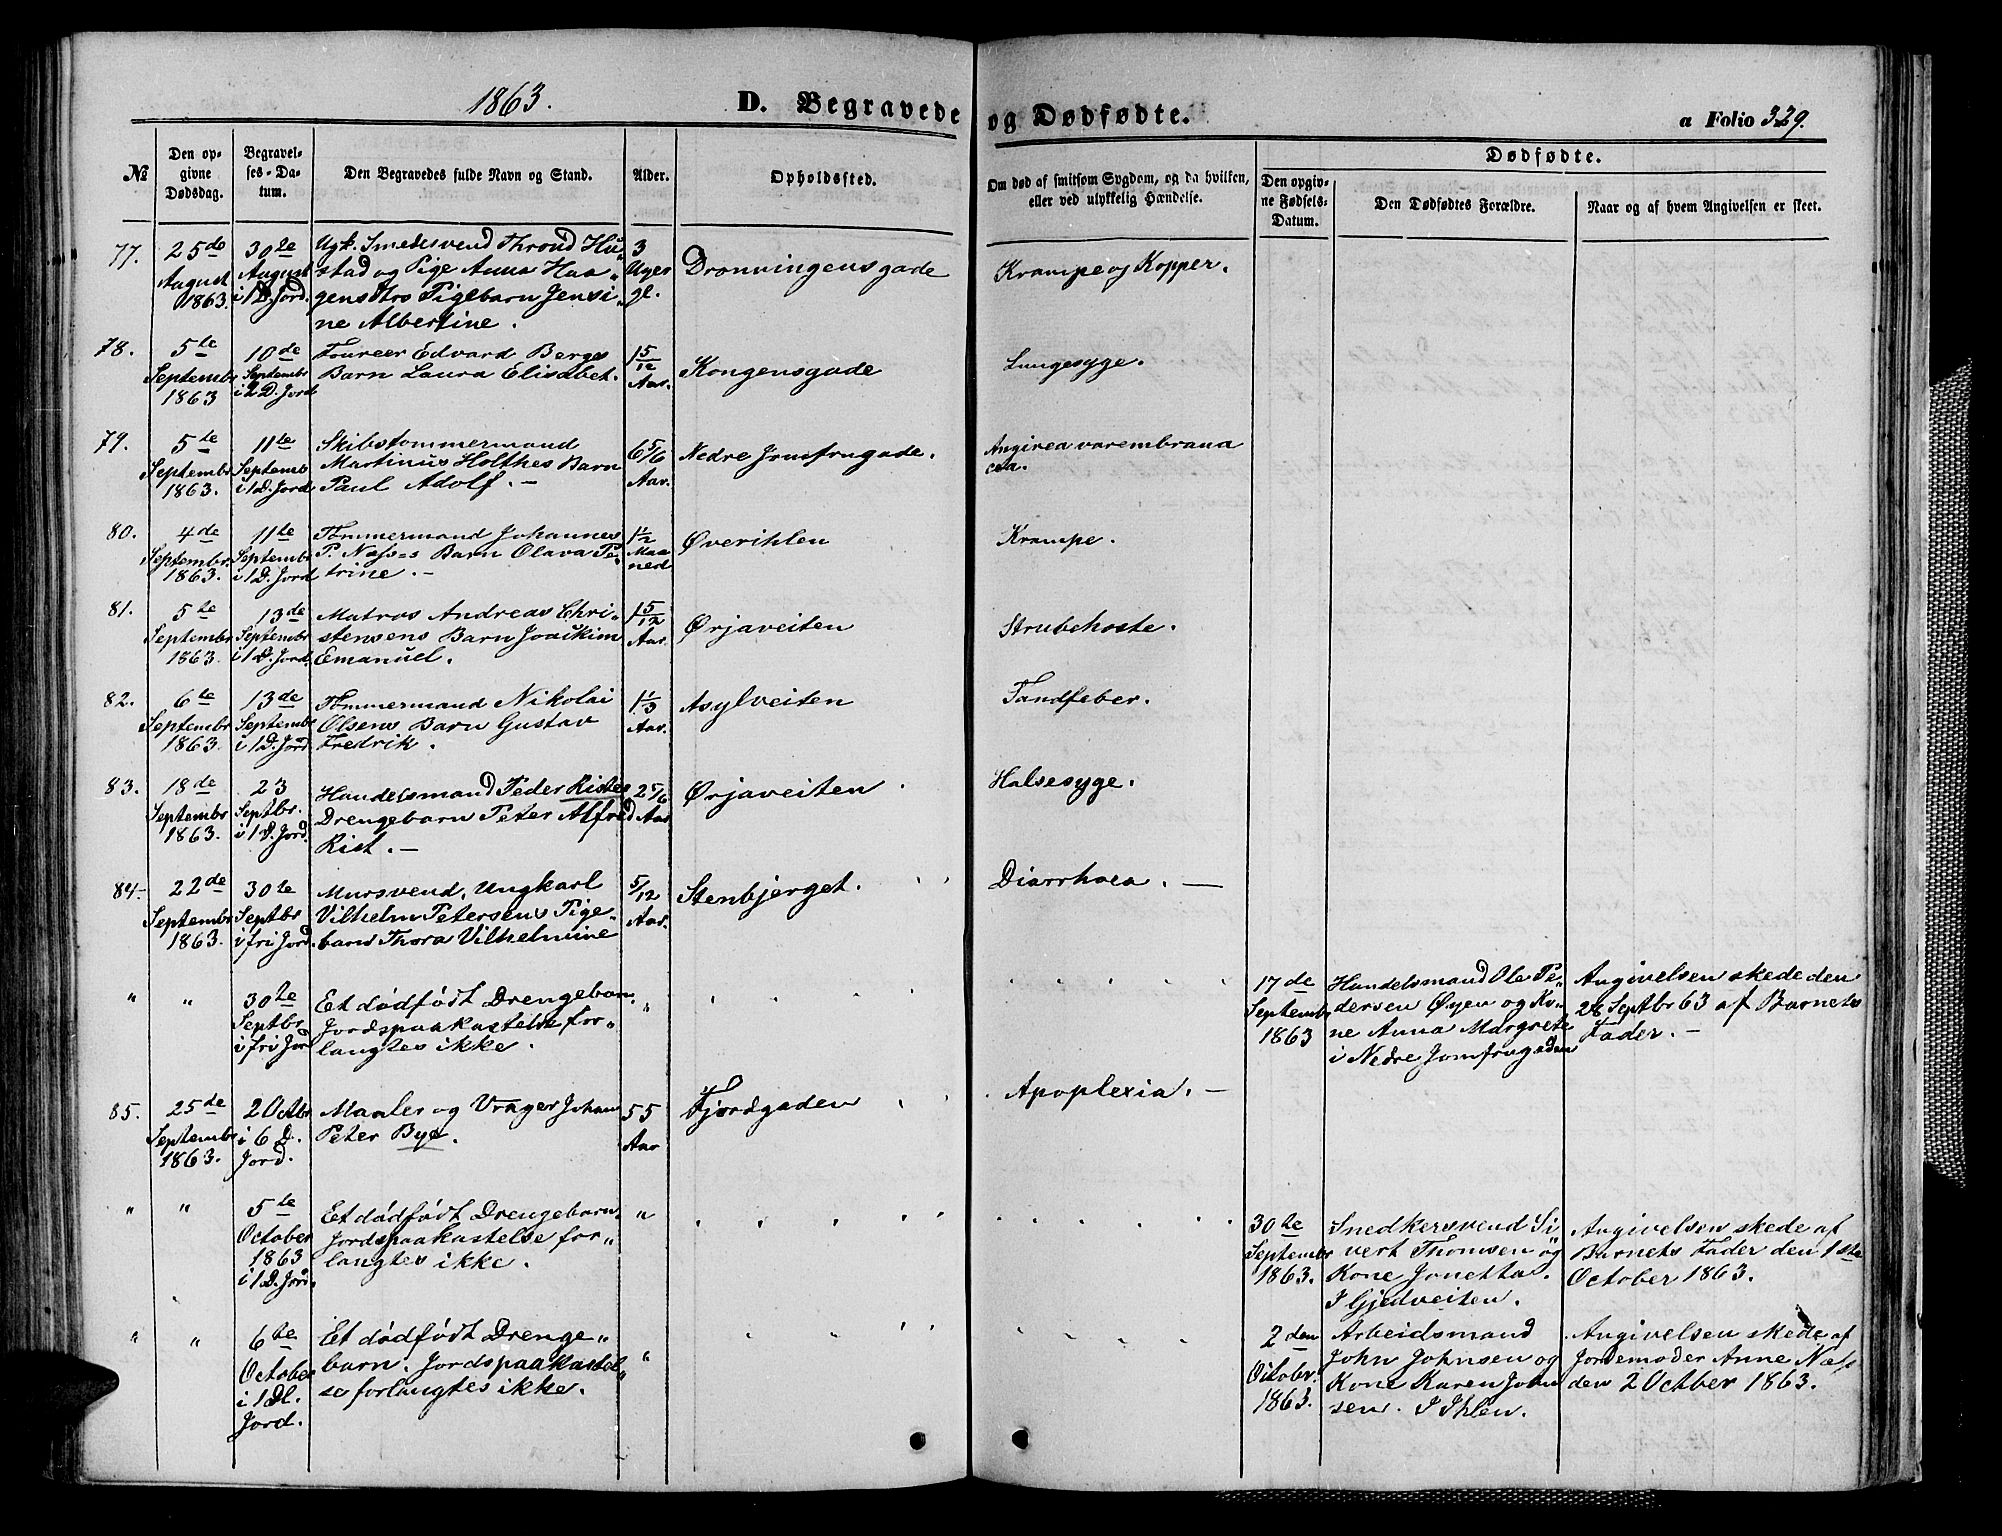 1863.
D. Begravede og Dødfødte.
a Folio 329.
№
Den opgivne Dødsdag.
Begravelses-Datum.
Den Begravedes fulde Navn og Stand.
Alder.
Opholdssted.
Om død af smitsom Sygdom, og da hvilken, eller ved ulykkelig Hændelse.
Dødfødte.
Den opgivne Fødsels-Datum.
Den Dødfødtes Forældre.
Naar og af hvem Angivelsen er skeet.
77.
25de August 1863.
30te August i 1 D. Jord.
Ugk. Smedesvend Thrond Hu-
stad og Pige Anna Haa-
gensdtrs Pigebarn Jensi-
ne Albertine.
3 Uger gl.
Dronningensgade
Krampe og Kopper.
78.
5te Septembr 1863
10de Septembr i 2 D. Jord
Foureer Edvard Bergs
Barn Laura Elisabet.
1 5/12 Aar.
Kongensgade
Lungesyge.
79.
5te Septembr 1863.
11te Septemb i 1 D. Jord
Skibstømmermand
Martinus Holthes Barn
Paul Adolf. –
6 5/6 Aar.
Nedre Jomfrugade.
Angirea varembrana
cea.
80.
4de Septembr. 1863.
11te Septembr i 1 D. Jord
Tømmermand Johannes
P. Næss's Barn Olava Pe-
trine. –
1 1/2 Maaned
Øverihlen
Krampe.
81.
5te Septembr 1863.
13de Septembr i 1 D. Jord.
Matros Andreas Chri-
stensens Barn Joakim
Emanuel.
1 5/12 Aar.
Ørjaveiten
Strubehoste.
82.
6te Septembr 1863.
13de Septembr i 1 D. Jord.
Tømmermand Nikolai
Olsens Barn Gustav
Fredrik.
1 1/3 Aar.
Asylveiten
Tandfeber.
83.
18de Septembr 1863.
23 Septbr. i 1 D. Jord.
Handelsmand Peder Ristes
Drengebarn Peter Alfred
Rist. –
2 5/6 Aar
Ørjaveiten
Halsesyge.
84.
22de Septembr 1863.
30te Septbr i fri Jord.
Mursvend, Ungkarl
Vilhelm Petersens Pige-
barn Thora Vilhelmine
5/12 Aar.
Stenbjerget.
Diarrhoea. –
" "
30te Septbr i fri Jord
Et dødfødt Drengebarn.
Jordspaakastelse for-
langtes ikke.
"
17de Septembr 1863
Handelsmand Ole Pe-
dersen Øyen og Ko-
ne Anna Margrete
i Nedre Jomfrugaden
Angivelsen skede den
28 Septbr 63 af Barnets
Fader. –
85.
25de Septembr 1863.
2 Octbr i 6 D. Jord.
Maaler og Vrager Johan
Peter Bye.
55 Aar
Fjordgaden
Apoplexia. –
" "
5te October 1863 i 1 D. Jord.
Et dødfødt Drengebarn.
Jordspaakastelse for-
langtes ikke.
"
30te Septembr 1863.
Snedkersvend Si-
vert Thomsen og
Kone Jonetta.
I Gjedveiten.
Angivelsen skede af
Barnets Fader den 1ste
October 1863.
" "
6te October i 1 Dl. Jord.
Et dødfødt Drenge-
barn. Jordspaakastel-
se forlangtes ikke.
"
2den October. 1863.
Arbeidsmand
John Johnsen og
Kone Karen John
sen. I Ihlen.
Angivelsen skede af
Jordemoder Anne Næss
den 2 October 1863.